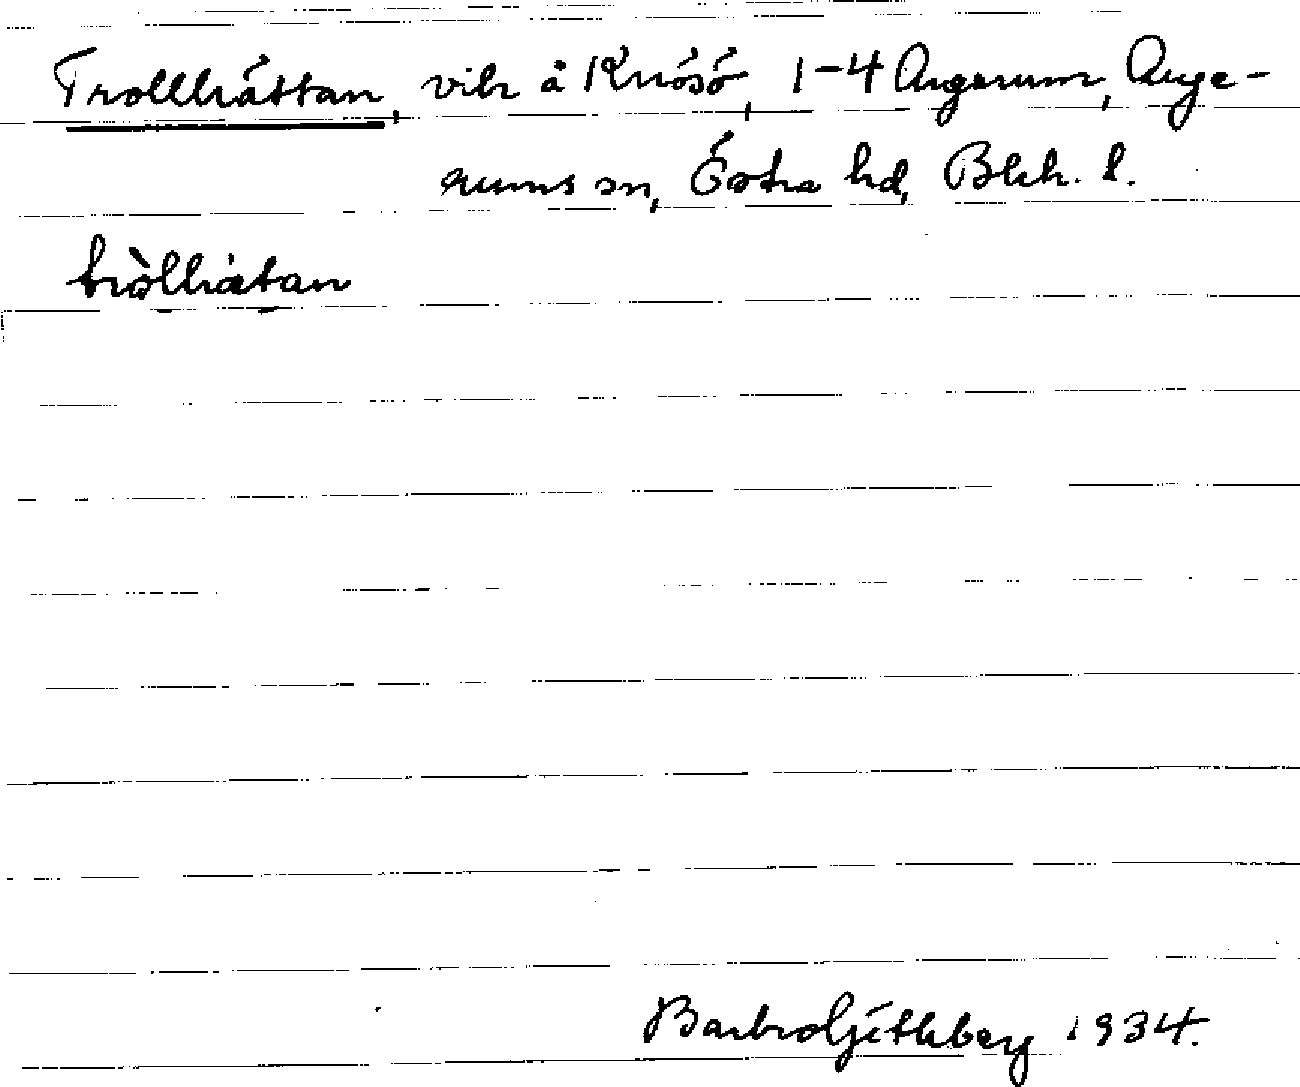 Trollhättan, vik å Knösö, 1-4 Augerum, Auge-
rums sn, Östra hd, Blek. l.
tròlhatan
Barbro 1934.